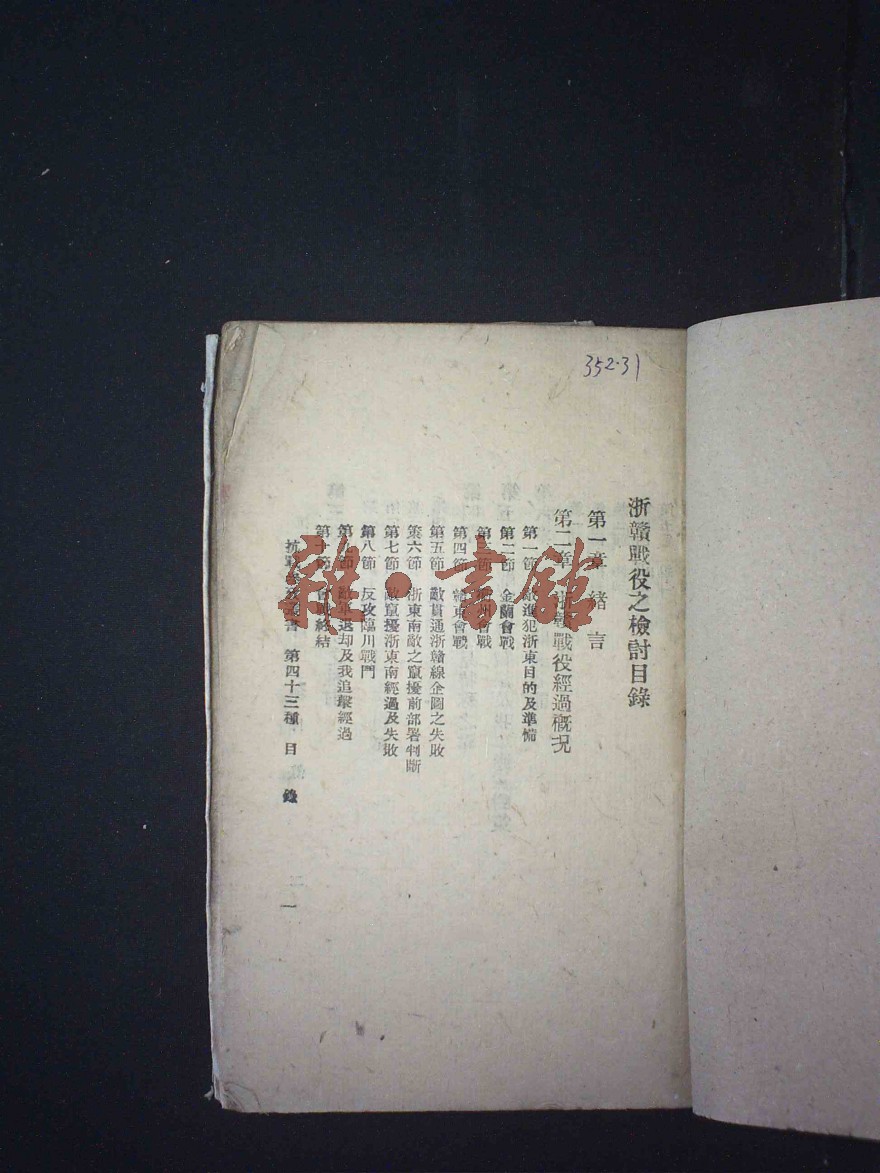 352.31
浙贛戰役之檢討目錄
第一章 緒言
第二章 戰役經過概況
第一節 敵進犯浙東目的及準備
第二節 金蘭會戰
第三節 會戰
第四節 東會戰
第五節 敵貫通浙贛線企圖之失敗
第六節 浙東南敵之竄擾前部署判斷
第七節 敵竄擾浙東南經過及失敗
第八節 反攻臨川戰鬥
第九節 敵軍退却及我追擊經過
第十節 總結
抗戰叢書 第四十三種 目錄
二 一
雜·書館